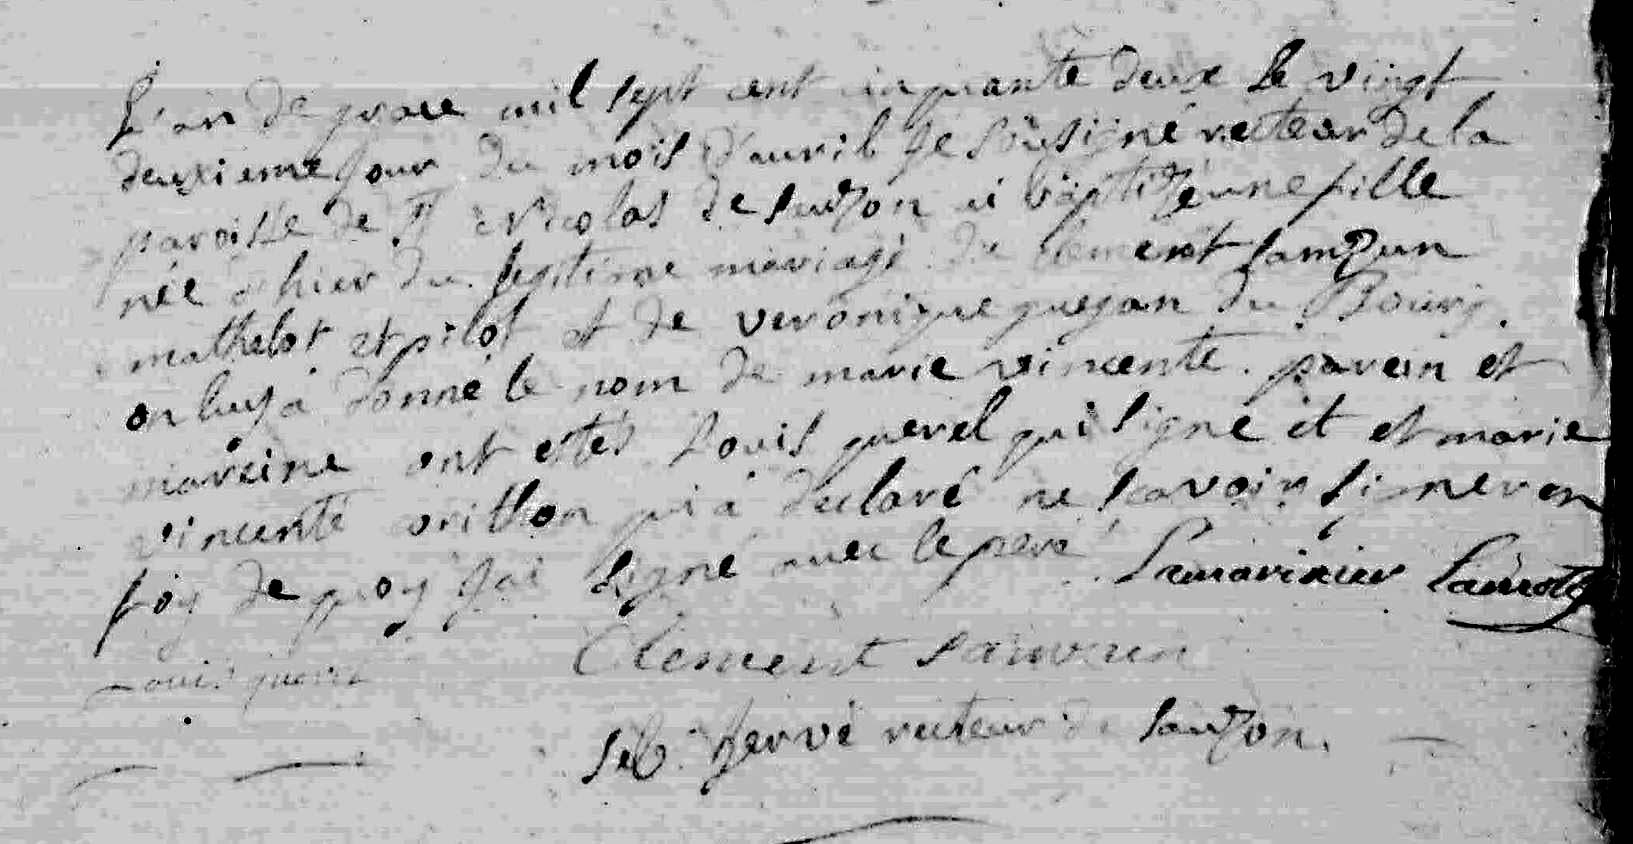 L'an de grace mil sept cent cinquante deux Le vingt
deuxieme jour du mois d'auvril Je sousigné recteur de la
paroisse de St Nicolas de sauzon ai baptizé une fille
née d'hier du legitime mariage de clement samzun
mathelot et pilot et de veronique guejan du Bourg
on luy a donné le nom de marie vincente . parein et
mareine ont estés Louis querel qui signe et et marie
vincente orillon qui a declaré ne scavoir signer en
foy de quoy j'ai signé avec le pere Lamarinier Lamotte
Louis querel
Clement samzun
seb. hervé recteur de sauzon.